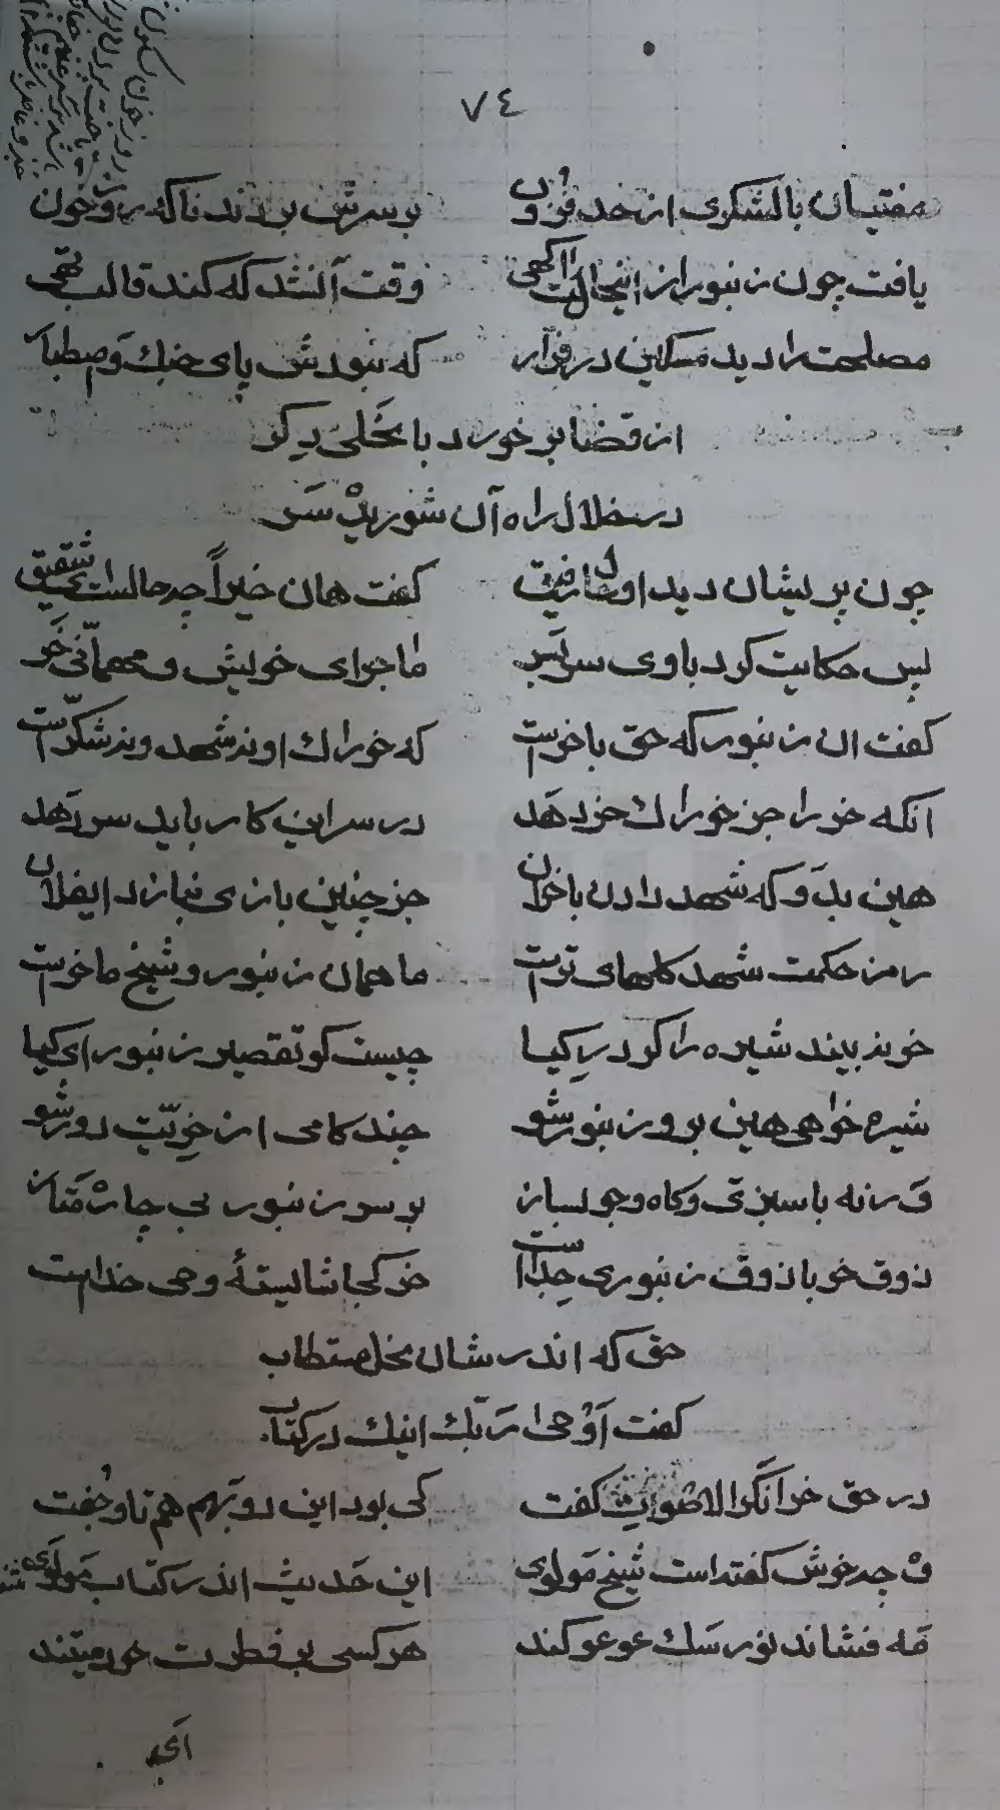 ٧٤
مفتیان با لشکری از حد فزون بر سرش بردند ناگه روز خون
یافت چون زنبور از اینحالت آگهی وقت آنشد که کند قالب تهی
مصلحت را دید مسکین در فرار که نبودش پای جنك و اصطبار
از قضا بر خورد با نحلی دگر
در خلال راه آن شوریده سر
چون پریشان دید او را رفیق گفت هان خیراً چه حالست ای شقیق
پس حکایت کرد با وی سر بسر ماجرای خویش و مهمانّی خر
گفت ان زنبور که حق با خراست که خوراك او نه شهد و نه شکّراست
انکه خر را جز خوراك خر دهد در سر این کار باید سر نهد
هین بدو که شهد دادن با خران جز چنین بازی نیارد ایفلان
رمز حکمت شهد کامهای تراست ما همان زنبور و شیخ ما خراست
خر نه بیند شیره را کو در گیا چیست کو تقصیر زنبور ای کیا
شیره خواهی هین برو زنبور شو چند کامی از خریّت دور شو
ورنه با سبزی و کاه و جو بساز بر سر زنبور بی چاره متاز
ذوق خر با ذوق زنبوری جداست خر کجا شایستهٔ وحی خداست
حق که اندر شان نحل مستطاب
گفت اَوْحیٰ رَبّك اینك در کتاب
در حق خر انکر الاصوات گفت کی بود این دو بهم همتا و جفت
وه چه خوش گفته است شیخ مولوی این حدیث اندر کتاب مولوی
مه فشاند نور سك عوعو کند هر کسی بر فطرت خود میتند
ای